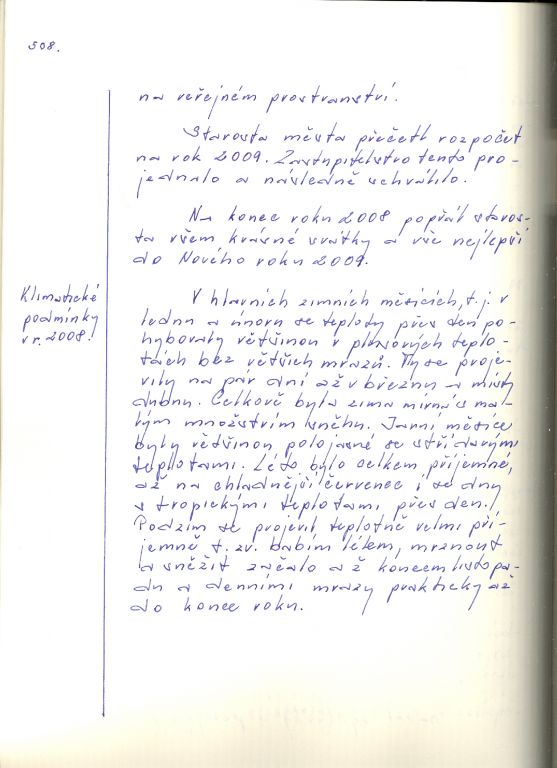 508.
na veřejném prostranství.
Starosta města přečetl rozpočet
na rok 2009. Zastupitelstvo tento pro-
jednalo a následně schválilo.
Na konec roku 2008 popřál staros-
ta všem krásné svátky a vše nejlepší
do Nového roku 2009.
Klimatické
podmínky
v r. 2008.
V hlavních zimních měsících, t.j. v
lednu a únoru se teploty přes den po-
hybovaly většinou v plusových teplo-
tách bez větších mrazů. Ty se proje-
vily na pár dní až v březnu a místy
dubnu. Celkově byla zima mírná s ma-
lým množstvím sněhu. Jarní měsíce
byly většinou polojasné se střídavými
teplotami. Léto bylo celkem příjemné,
až na chladnější červenec i se dny
s tropickými teplotami, přes den.
Podzim se projevil teplotně velmi pří-
jemně t. zv. babím létem, mrznout
a sněžit začalo až koncem listopa-
du a denními mrazy prakticky až
do konce roku.